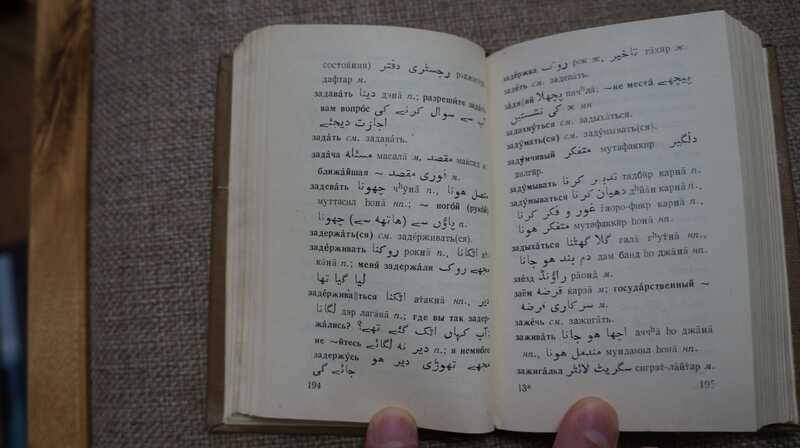 состояния) رجسٹری دفتر
дафтар м.
задавать دینا дэна п.; разрешите задать
вам вопрос آپ سے سوال کرنے کی
اجازت دیجئے
задать см. задавать.
задача مسئلہ масала м, مقصد максад м.
ближайшая ~ فوری مقصد м.
задевать چھونا чʰӯна п., متصل ہونا
муттасил hона нп.; ~ ногой (рукой)
پاؤں سے (ہاتھ سے) چھونا п.
задержать(ся) см. задерживать(ся).
задерживать روکنا рокна, اٹکانا
кана п.; меня задержали مجھے روک
لیا گیا تھا
задерживаться اٹکنا атакна нп., دیر
لگانا дэр лагана п.; где вы так задер-
жались? آپ کہاں اٹک گئے تھے؟
не ~йтесь دیر نہ لگائے п.; я немного
задержусь مجھے تھوڑی دیر ہو
جائے گی
194
задержка روک рок ж, تاخیر та́хир ж.
задеть см. задевать.
задний پچھلا пичʰла; ~не места پیچھے
کی نشستیں ж мн
задохнуться см. задыхаться.
задумать(ся) см. задумывать(ся).
задумчивый متفکر мутафаккир دلگیر
далгир.
задумывать تدبیر کرنا тадбир карна п.
задумываться دھیان کرنا дʰйан карна п.,
غور و فکر کرنا гаоро-фикр карна п.,
متفکر ہونا мутафаккир hона нп.
задыхаться گلا گھٹنا гала гʰутна нп.,
دم بند ہو جانا дам банд hо джана нп.
заезд راؤنڈ раонд м.
заём قرضہ карза м; государственный ~
سرکاری قرضہ м.
зажечь см. зажигать.
заживать اچھا ہو جانا аччʰа hо джана
нп., مندمل ہونا мундамил hона нп.
зажигалка سگریٹ لائٹر сигрэт-лайтар м.
13* 195